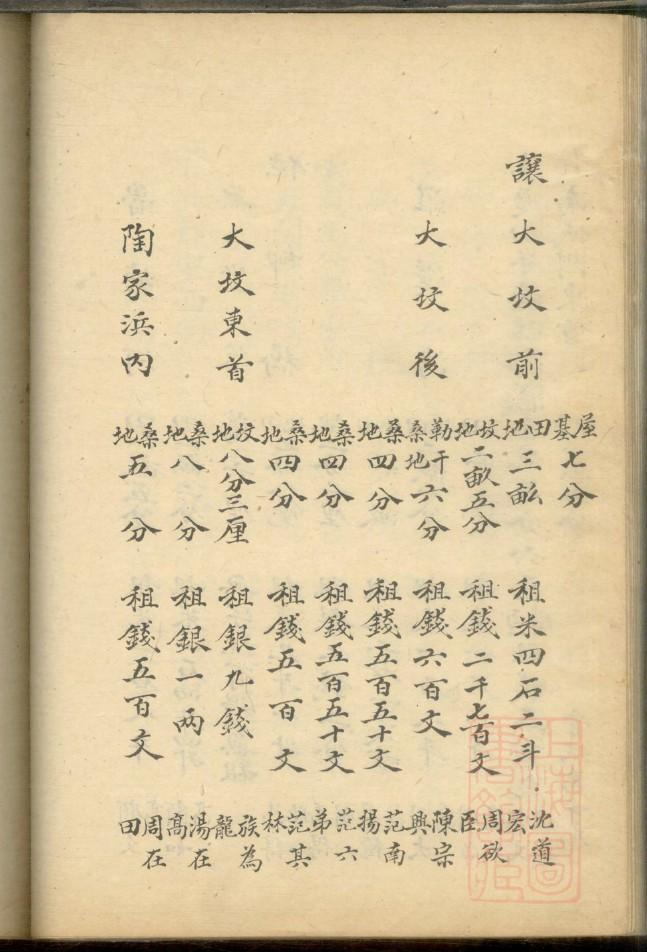 屋基七分
讓大坟前 田地三畝 租米四石二斗 沈道宏
坟地二畝五分 租錢二千七百文 周欲臣
大坟後 勒干桑地六分 租錢六百文 陳宗興
桑地四分 租錢五百五十文 范南揚
桑地四分 租錢五百五十文 范六弟
桑地四分 租錢五百文 范其林
大坟東首 坟地八分三厘 租銀九錢 族為龍
桑地八分 租銀一兩 湯在高
陶家浜内 桑地五分 租錢五百文 周在田